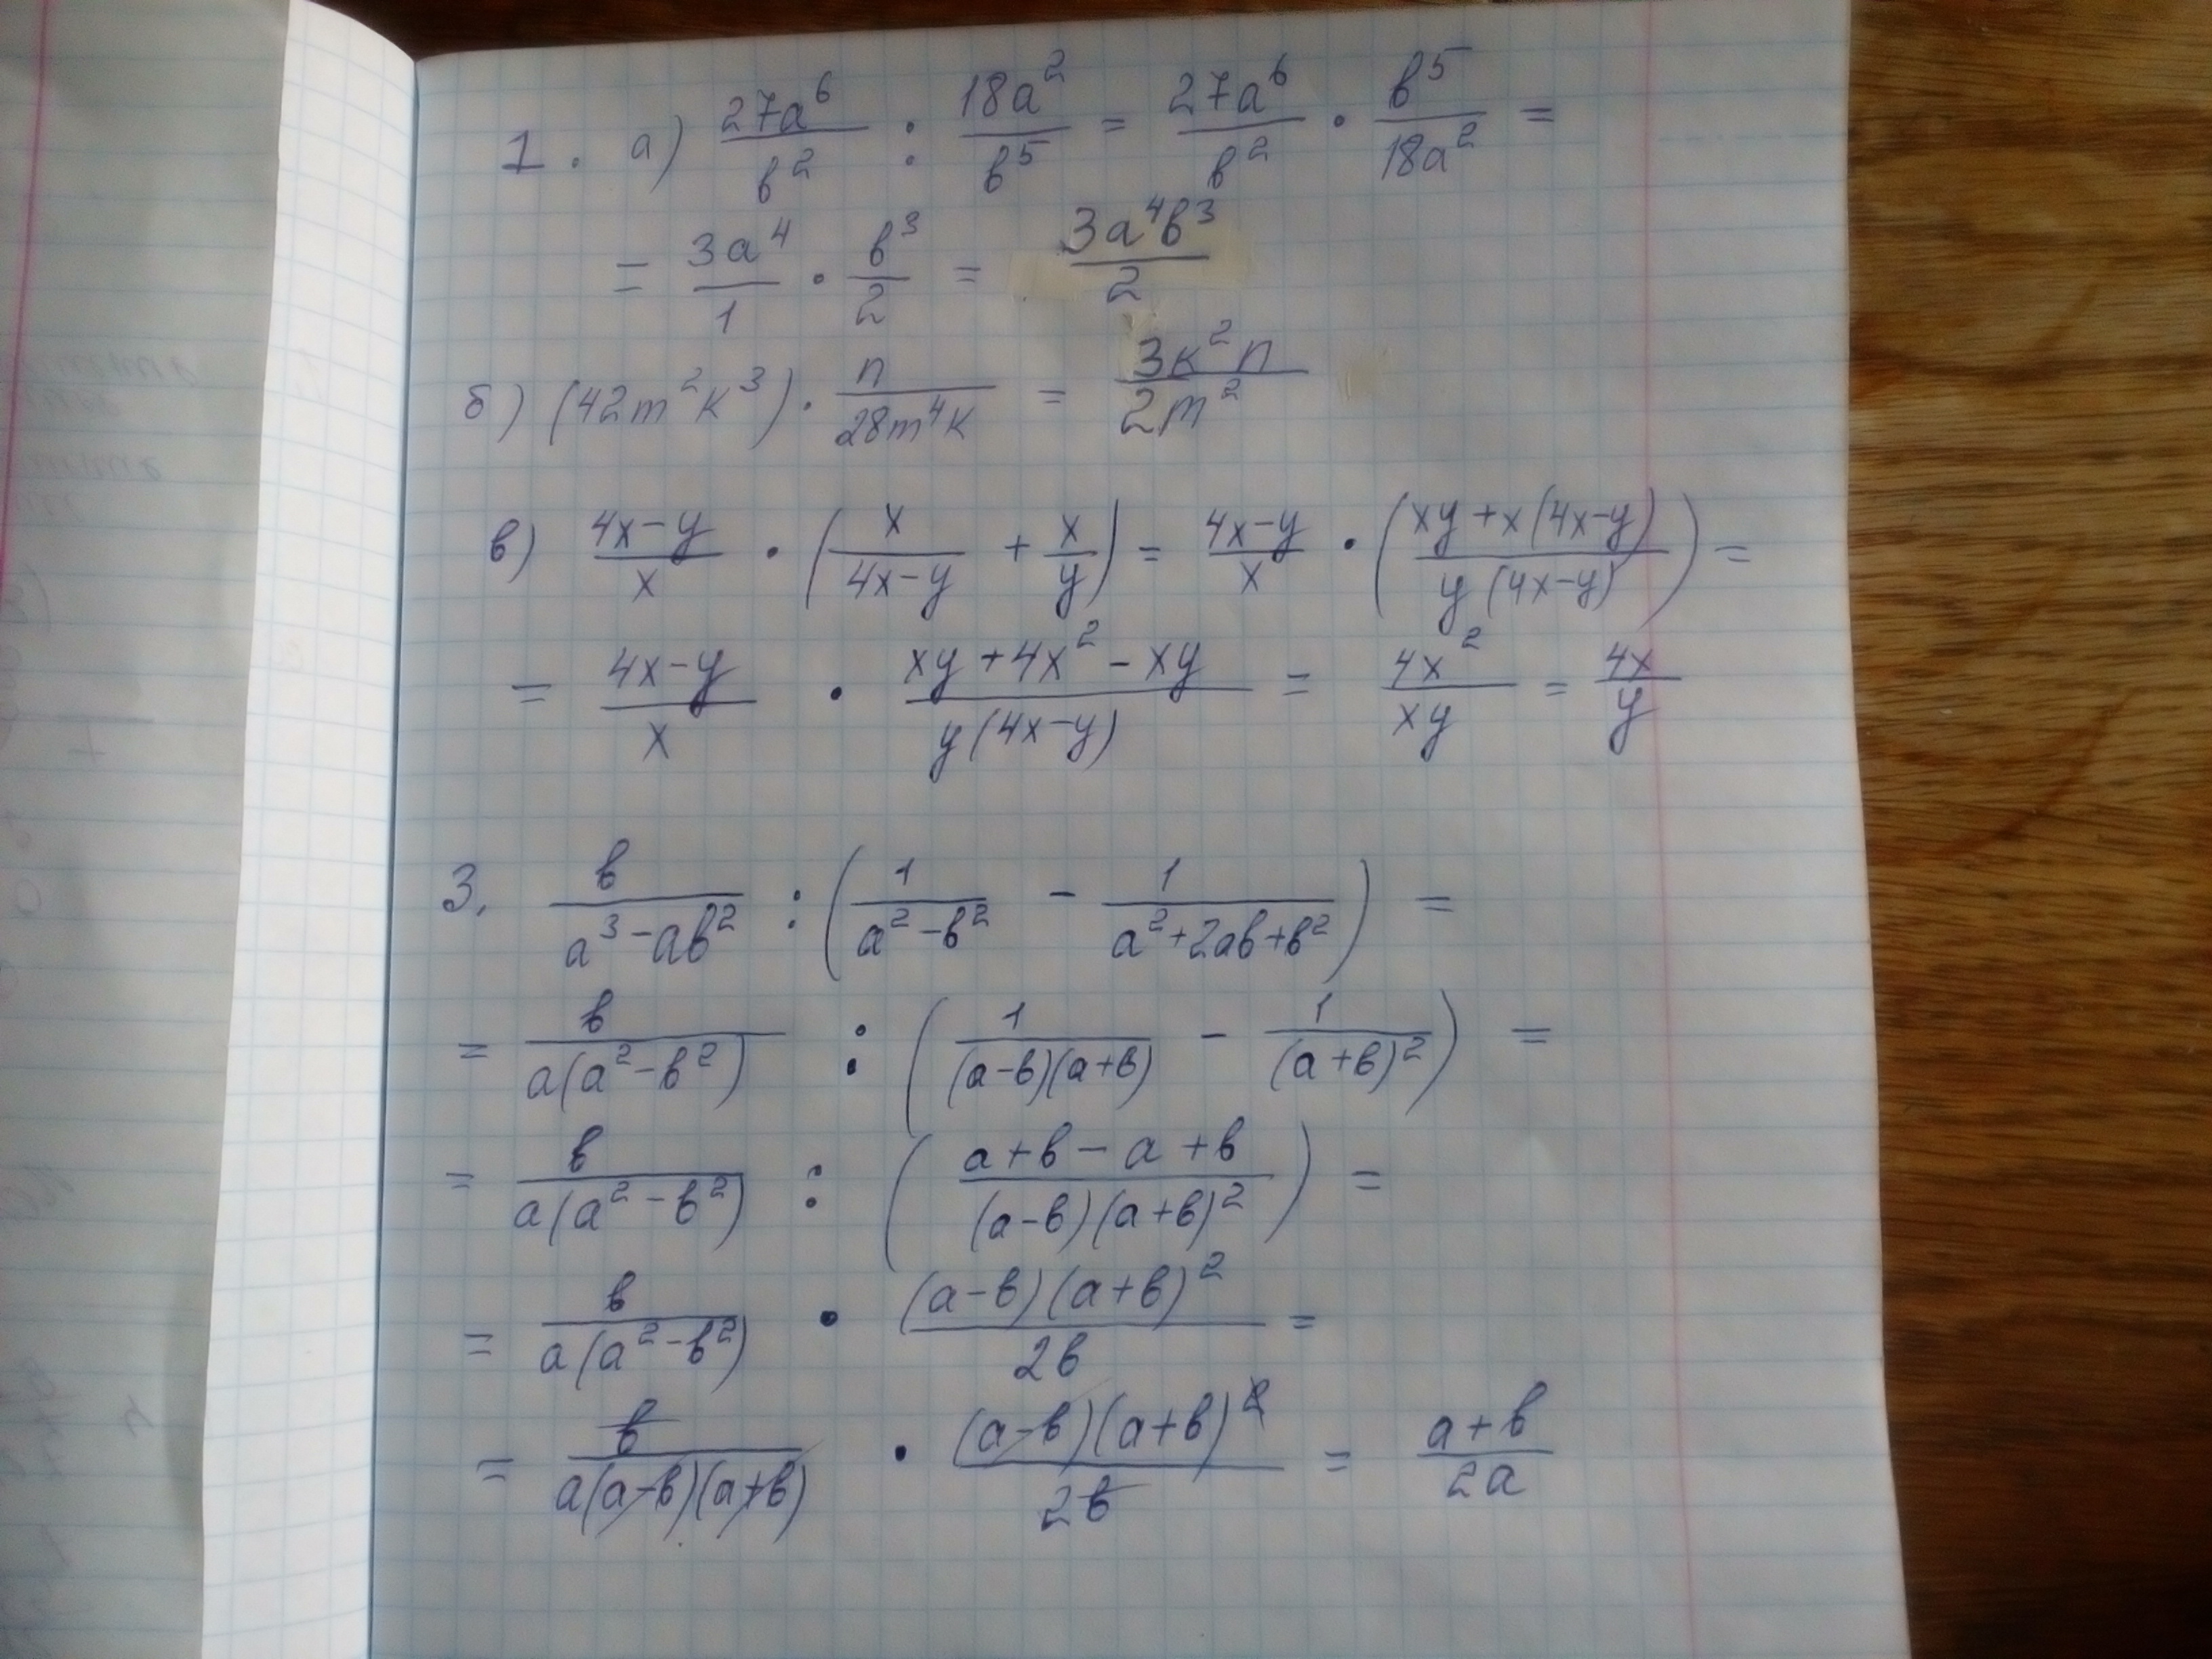 1. а) 27a⁶/b² : 18a²/b⁵ = 27a⁶/b² · b⁵/18a² =
= 3a⁴/1 · b³/2 = 3a⁴b³/2
б) (42m²k³) · n/28m⁴k = 3k²n/2m²
в) 4x-y/x · (x/4x-y + x/y) = 4x-y/x · (xy+x(4x-y)/y(4x-y)) =
= 4x-y/x · xy+4x²-xy/y(4x-y) = 4x²/xy = 4x/y
3. b/a³-ab² : (1/a²-b² - 1/a²+2ab+b²) =
= b/a(a²-b²) : (1/(a-b)(a+b) - 1/(a+b)²) =
= b/a(a²-b²) : (a+b-a+b/(a-b)(a+b)²) =
= b/a(a²-b²) · (a-b)(a+b)²/2b =
= b/a(a-b)(a+b) · (a-b)(a+b)²/2b = a+b/2a